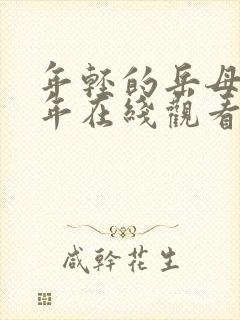 年轻的岳母
年在綫觀看
咸幹花生